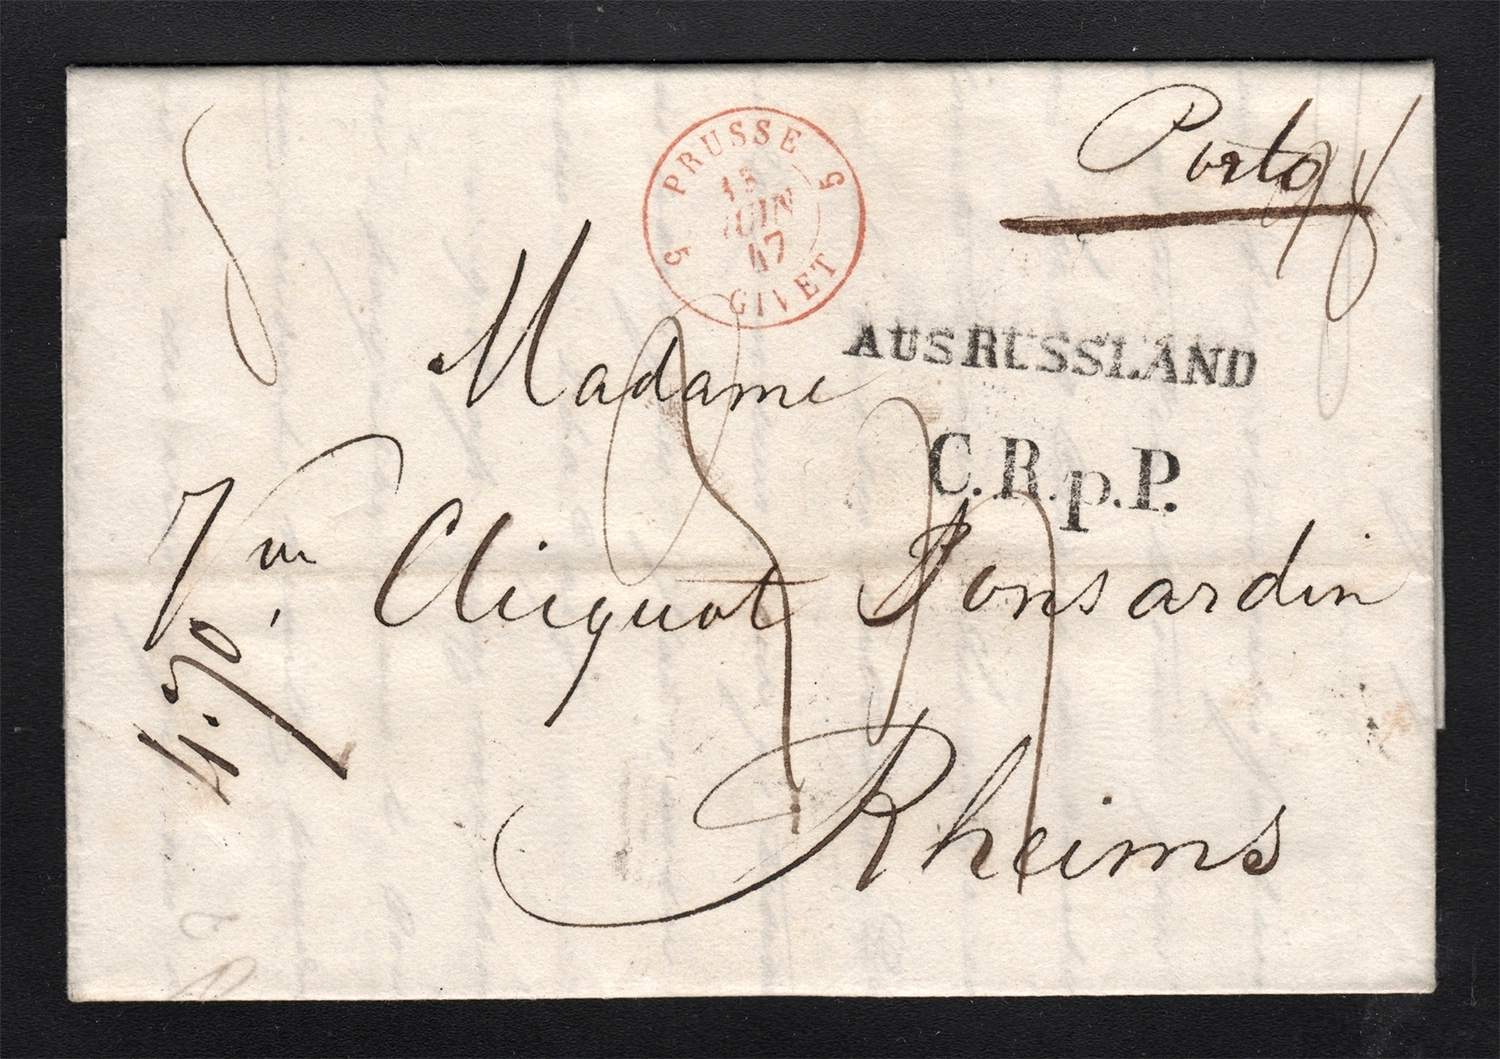 Porto
PRUSSE
5 5
13
JUIN
47
GIVET
AUS RUSSLAND
C. R. p. P.
Madame
Vve Clicquot Ponsardin
4.70
Rheims